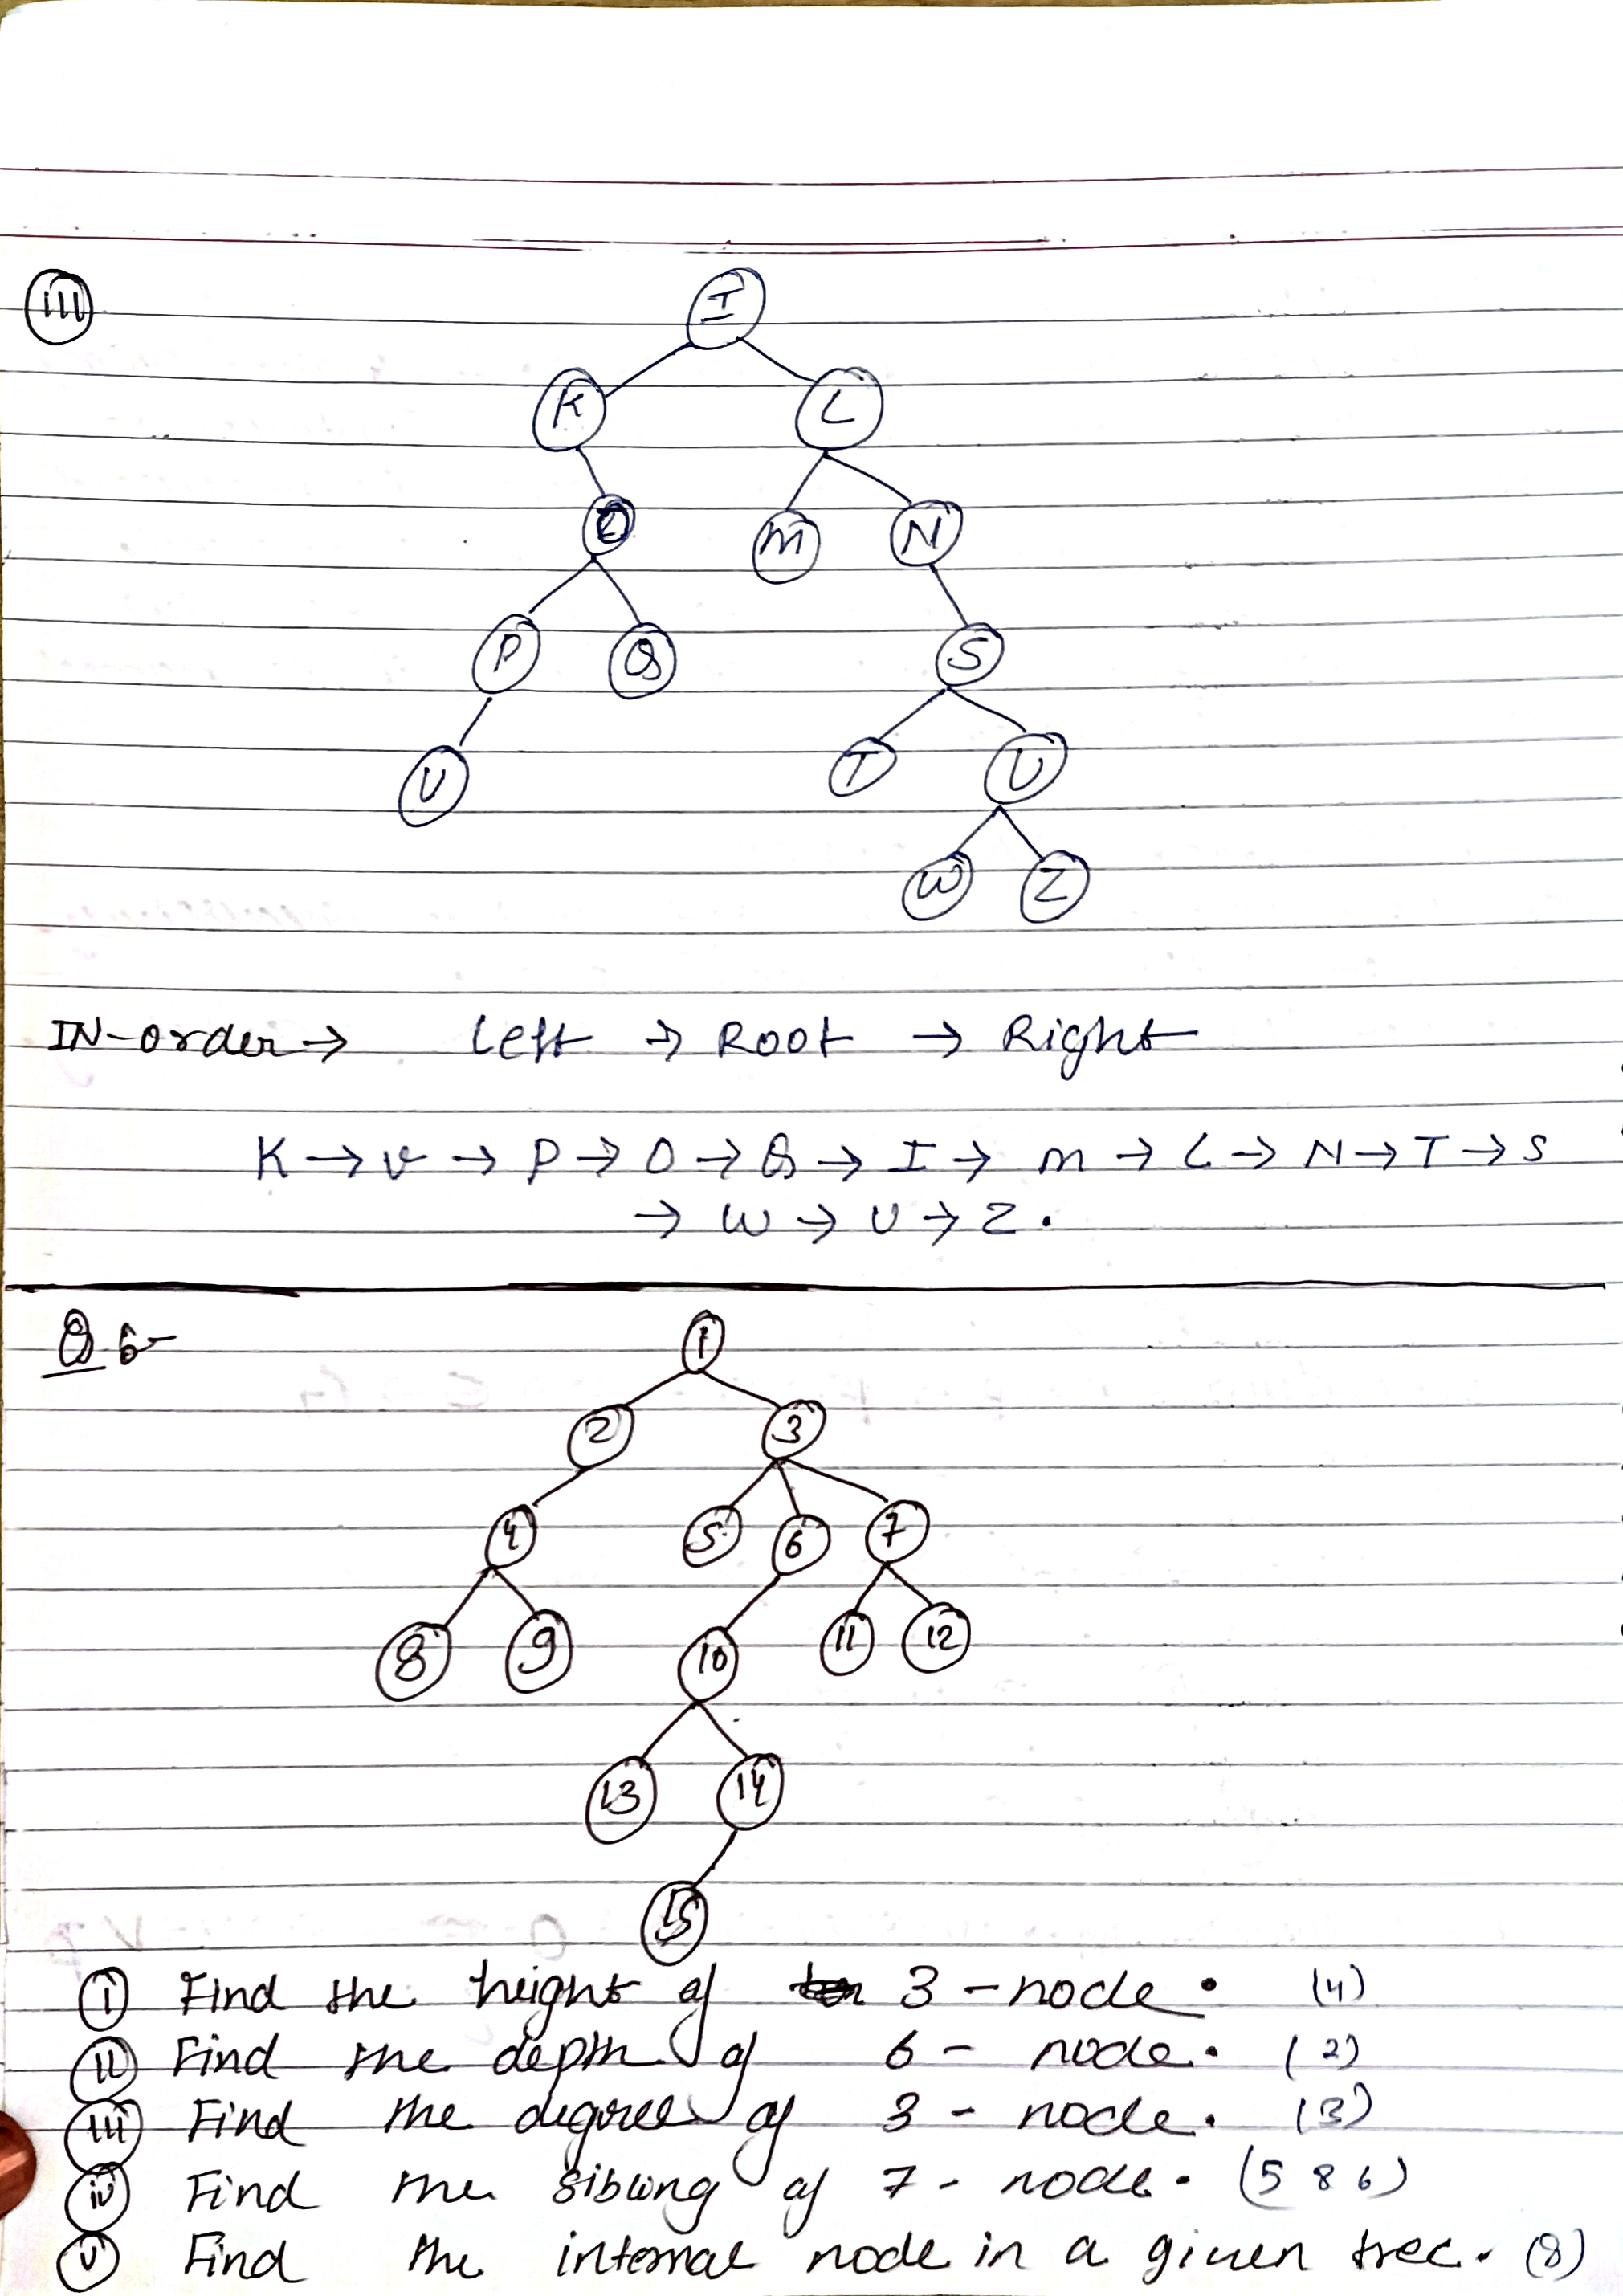 iii
I
K L
O M N
P Q S
V T U
W Z
IN-order → Left → Root → Right
K → V → P → O → Q → I → M → L → N → T → S
→ W → U → Z.
Q 6-
1
2 3
4 5 6 7
8 9 10 11 12
13 14
15
i Find the height of 3 - node. (4)
ii Find the depth of 6 - node. (2)
iii Find the degree of 3 - node. (3)
iv Find the sibling of 7 - node. (5 & 6)
v Find the internal node in a given tree. (8)